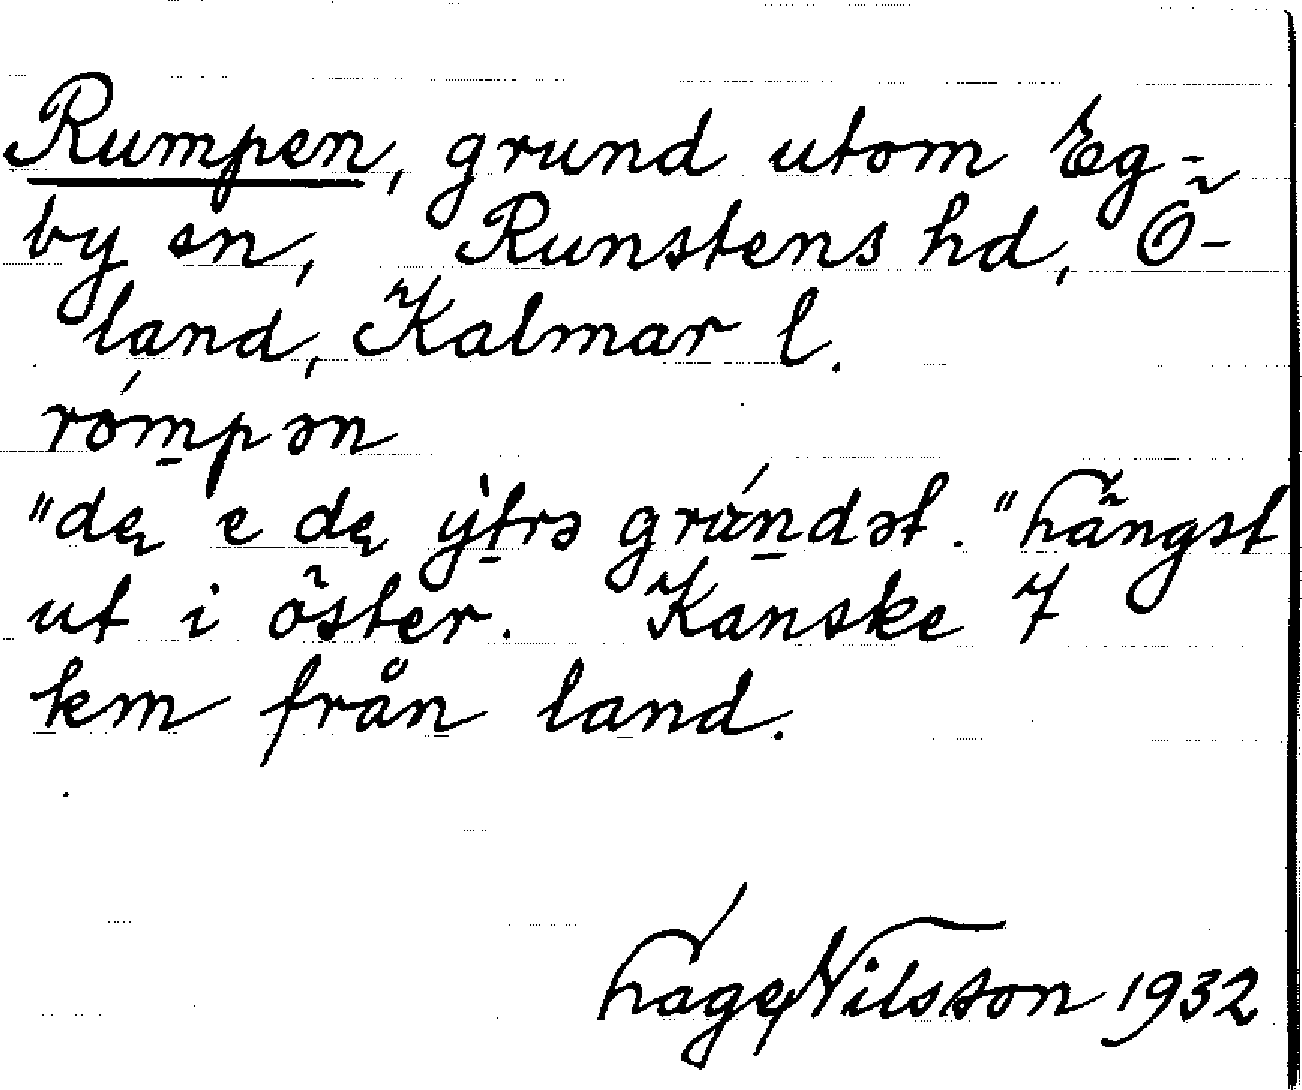 Rumpen, grund utom Eg-
by sn, Runstens hd, Ö-
land, Kalmar l.
rómpən
"dę e dę ỳtrə grándət. "Längst
ut i öster. Kanske 7
km från land.
Hage Nilsson 1932